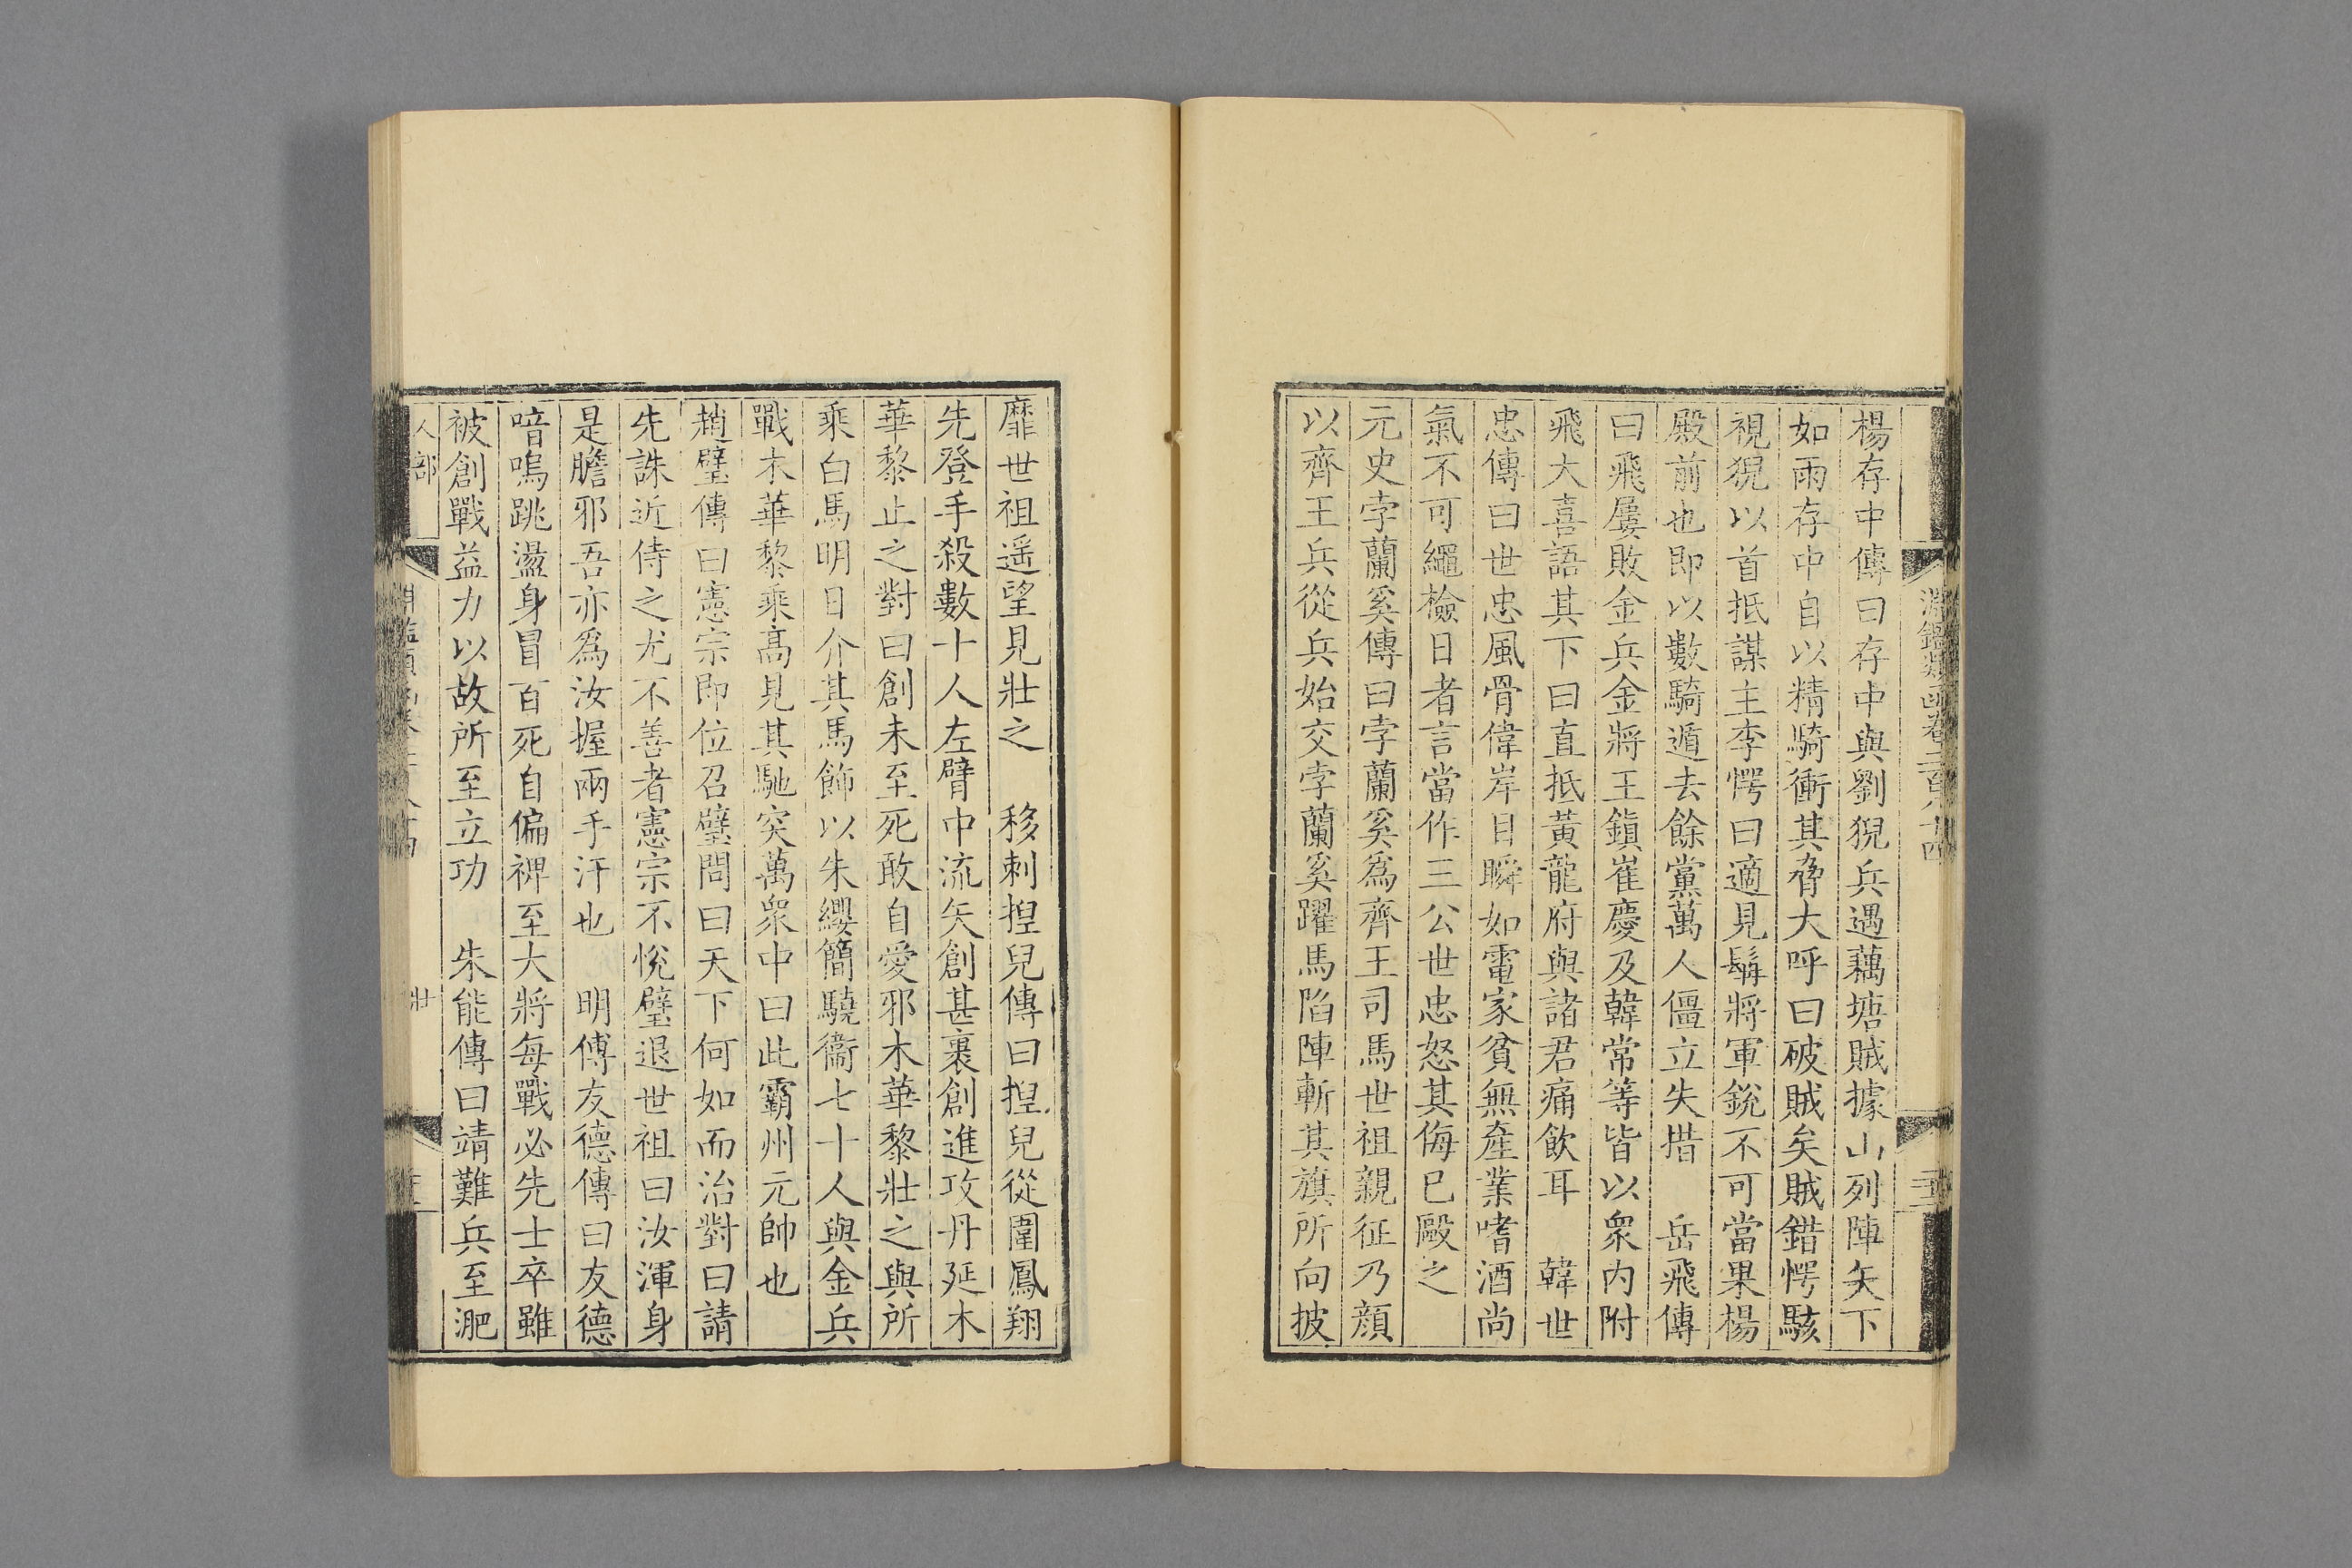 楊存中傳曰存中與劉猊兵遇藕塘賊據山列陣矢下
如雨存中自以精騎衝其脅大呼曰破賊矣賊錯愕駭
視猊以首抵謀主李愕曰適見髯將軍銳不可當果楊
殿前也即以數騎遁去餘黨萬人僵立失措 岳飛傳
曰飛屢敗金兵金將王鎮崔慶及韓常等皆以眾內附
飛大喜語其下曰直抵黃龍府與諸君痛飲耳 韓世
忠傳曰世忠風骨偉岸目瞬如電家貧無產業嗜酒尚
氣不可繩檢日者言當作三公世忠怒其侮已毆之
元史孛蘭奚傳曰孛蘭奚為齊王司馬世祖親征乃顏
以齊王兵從兵始交孛蘭奚躍馬陷陣斬其旗所向披
靡世祖遥望見壯之 移刺揑兒傳曰揑兒從圍鳳翔
先登手殺數十人左臂中流矢創甚裹創進攻丹延木
華黎止之對曰創未至死敢自愛邪木華黎壯之與所
乘白馬明日介其馬飾以朱纓簡驍衛七十人與金兵
戰木華黎乘高見其馳突萬眾中曰此霸州元帥也
趙璧傳曰憲宗即位召璧問曰天下何如而治對曰請
先誅近侍之尤不善者憲宗不悅璧退世祖曰汝渾身
是膽邪吾亦為汝握兩手汗也 明傅友德傳曰友德
喑嗚跳盪身冒百死自偏裨至大將每戰必先士卒雖
被創戰益力以故所至立功 朱能傳曰靖難兵至淝
人部